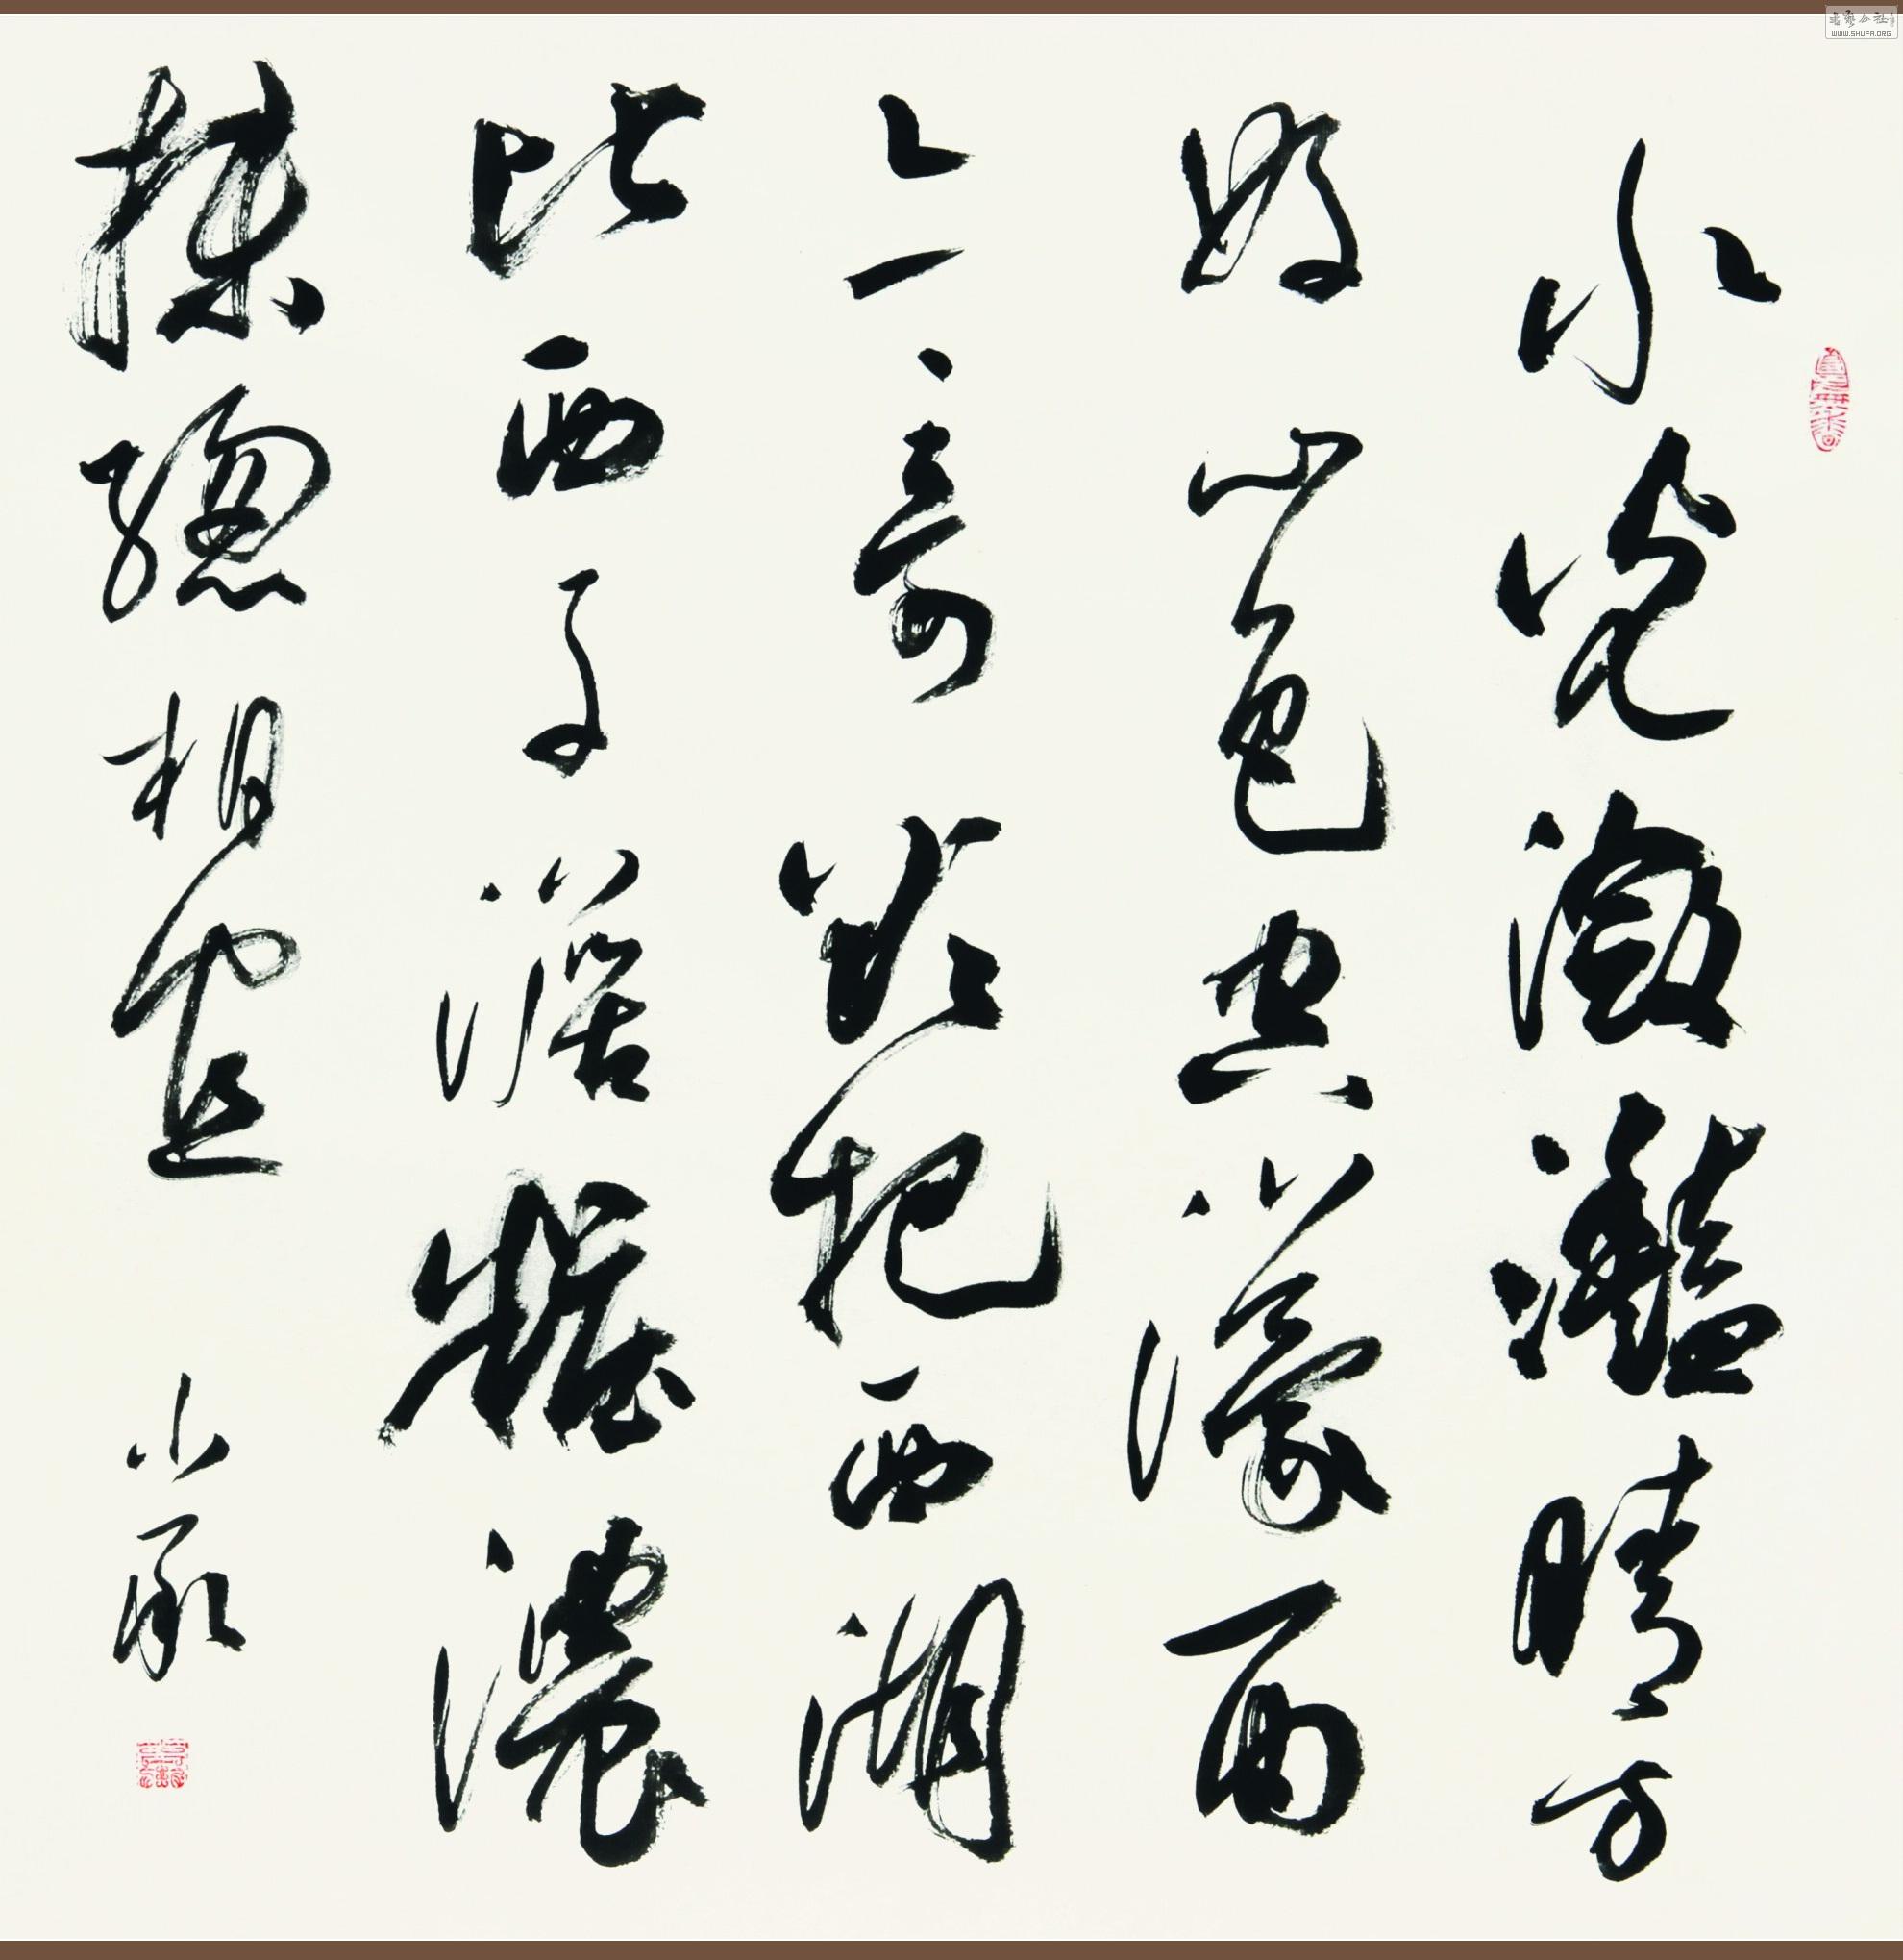 水光瀲灩晴方
好山色空濛雨
亦奇欲把西湖
比西子澹粧濃
抹總相宜
小承
书艺公社
WWW.SHUFA.ORG